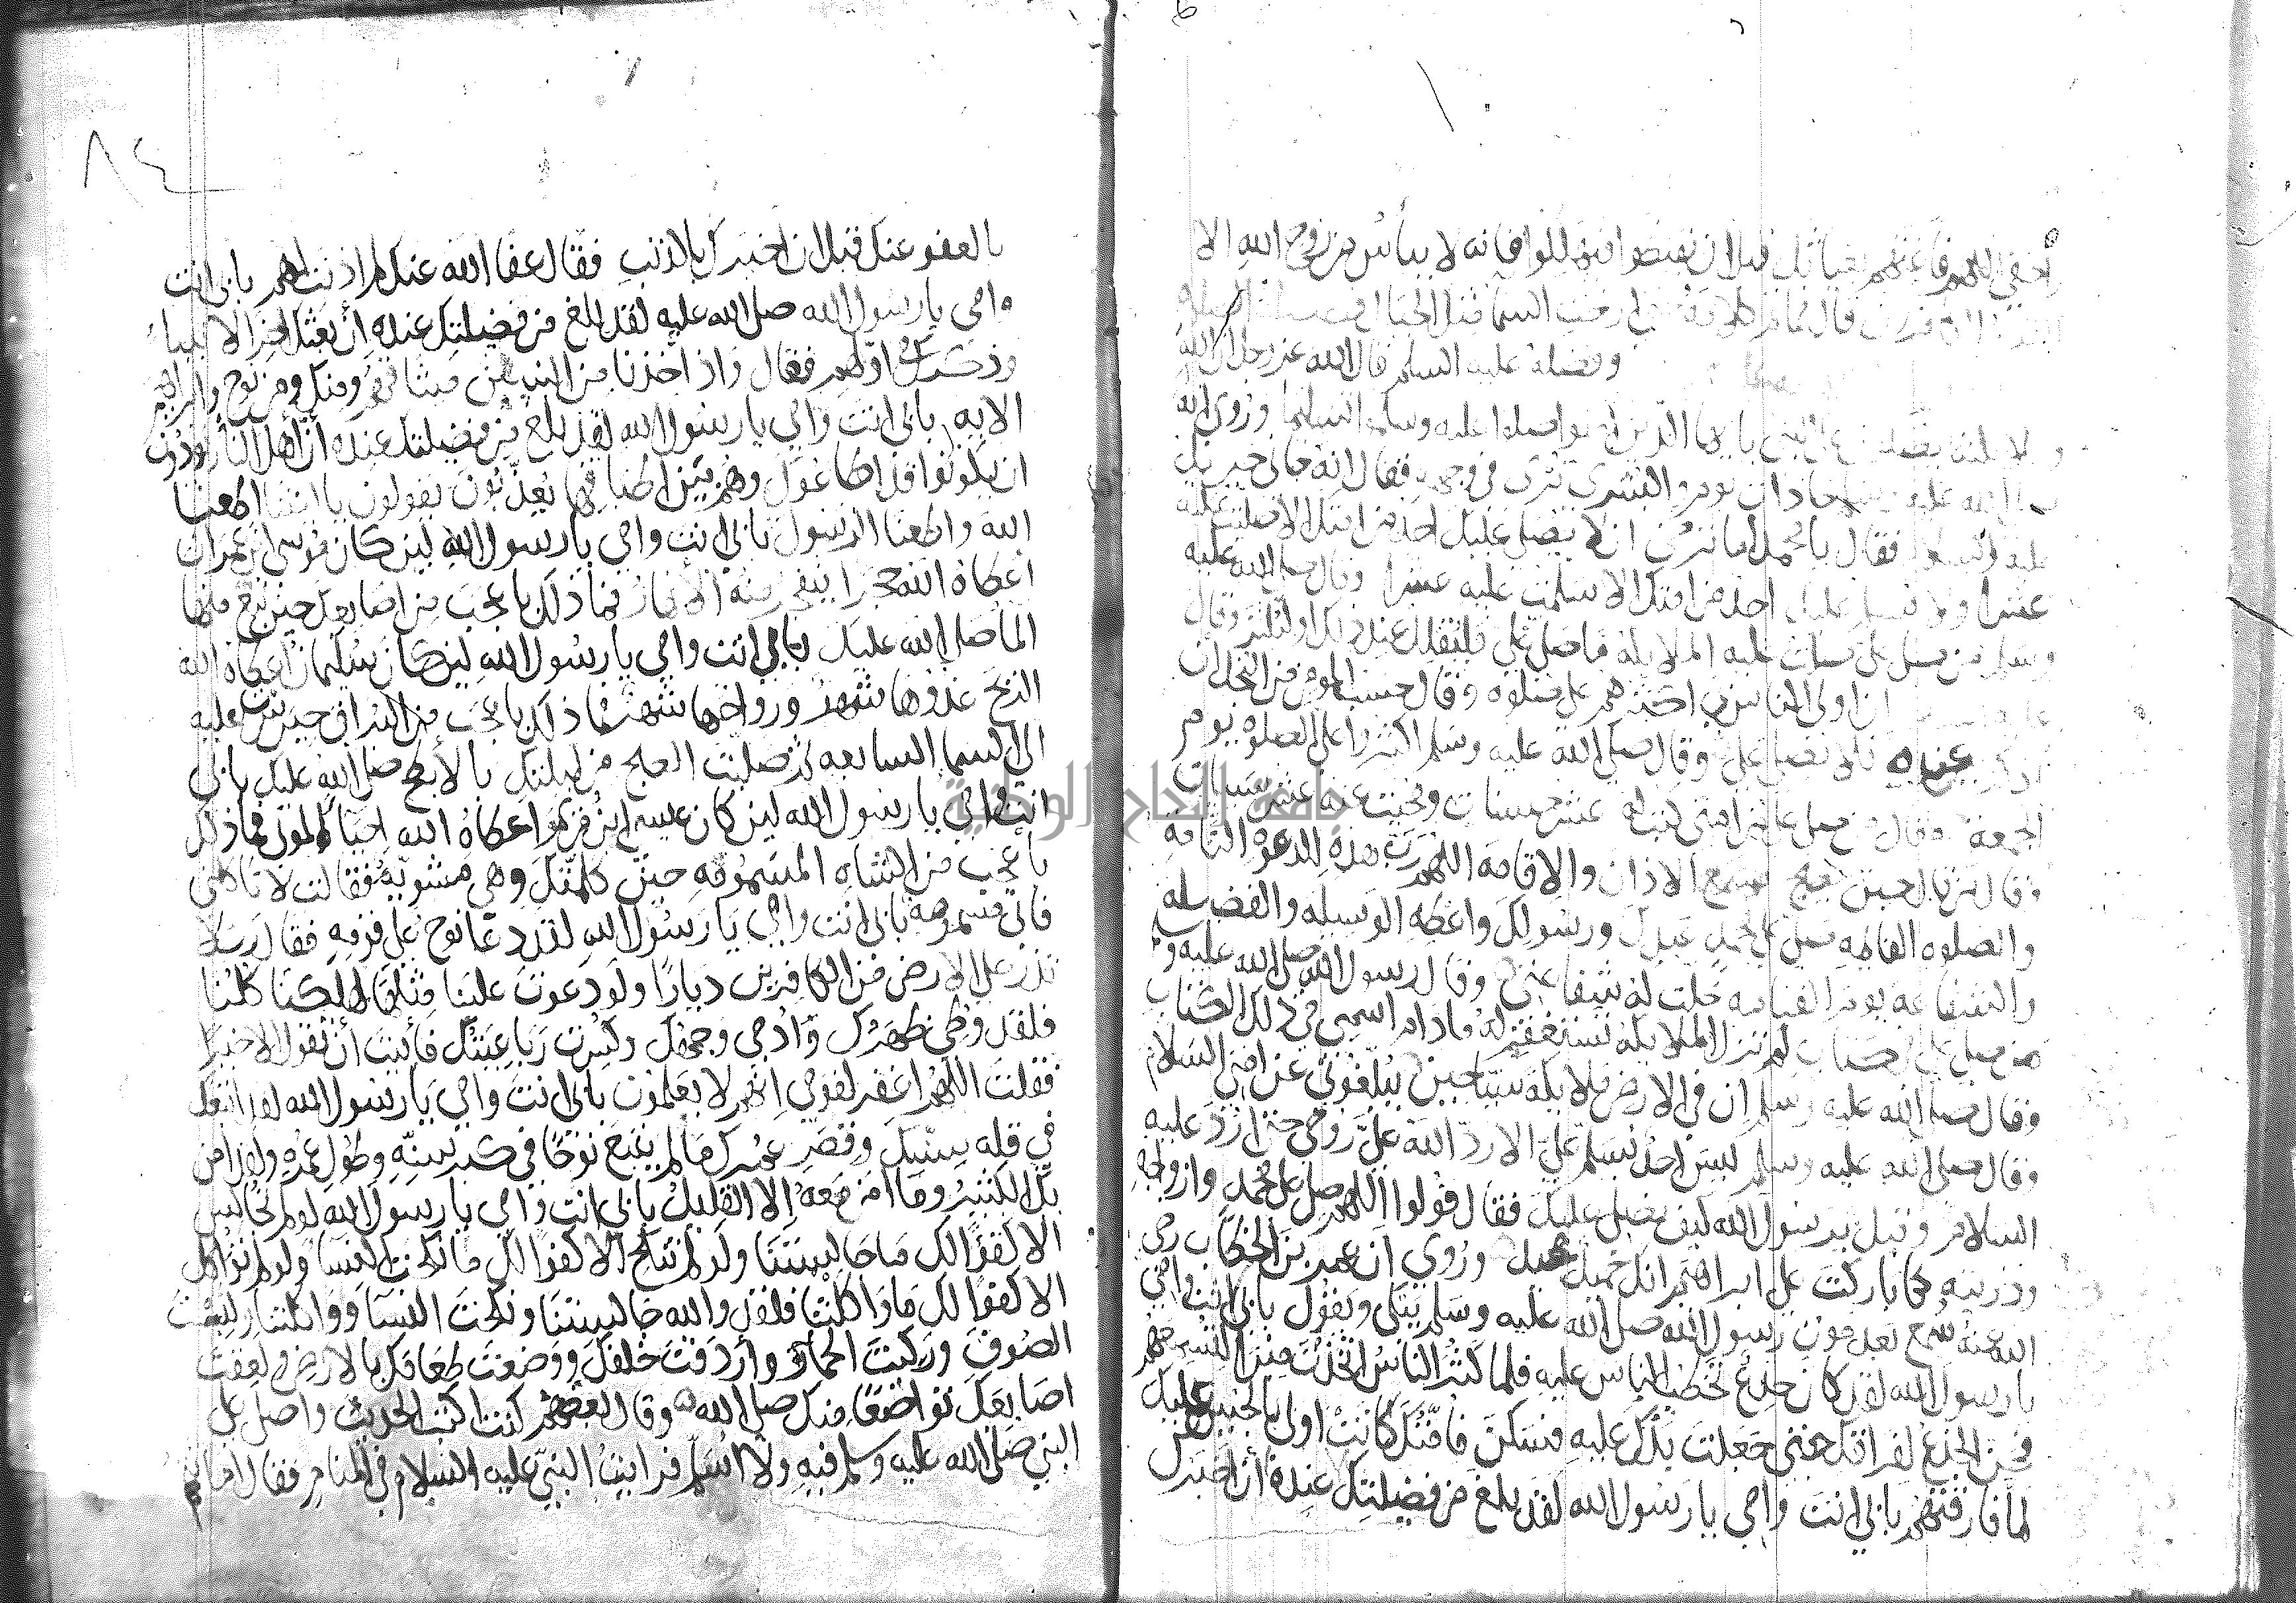 اللهم فاغثهم بغياثك قبل ان يقنطوا فيهلكوا فانه لا ييأس من روح الله الا
قال فما تم كلامه حتى ارخت السما مثل الجبال
وفضله عليه السلم قال الله عز وجل ان الله
وملائكته يصلون على النبي يا يها الذين امنوا صلوا عليه وسلموا تسليما وروي انه
صلى الله عليه وسلم جا ذات يوم والبشرى ترى في وجهه فقال انه جاني جبريل
عليه السلم فقال يا محمد اما ترضى ان لا يصلي عليك احد من امتك الا صليت عليه
عشرا ولا يسلم عليك احد من امتك الا سلمت عليه عشرا وقال صلى الله عليه
وسلم من صلى علي صلت عليه الملايكة ما صلى علي فليقلل عند ذلك او ليكثر وقال
ان اولى الناس بي اكثرهم علي صلوه وقال بحسب المومن من البخل ان
اذكر عنده فلا يصلي علي وقال صلى الله عليه وسلم اكثروا علي الصلوه يوم
الجمعة وقال من صلى علي من امتي كتبت له عشر حسنات ومحيت عنه عشر سيات
وقال من قال حين يسمع الاذان والاقامة اللهم رب هذه الدعوة التامة
والصلوه القايمه صل على محمد عبدك ورسولك واعطه الوسيله والفضيله
والشفاعه يوم القيامه حلت له شفاعتي وقال رسول الله صلى الله عليه و
من صلى علي في كتاب لم تزل الملايكة تستغفر له ما دام اسمي في ذلك الكتاب
وقال صلى الله عليه وسلم ان في الارض ملايكة سياحين يبلغوني عن امتي السلام
وقال صلى الله عليه وسلم ليس احد يسلم علي الا رد الله علي روحي حتى ارد عليه
السلام وقيل يرسول الله كيف نصلي عليك فقال قولوا اللهم صل على محمد وازواجه
وذريته كما باركت على ابراهيم انك حميد مجيد وروي ان عمر بن الخطاب رضي
الله عنه سمع بعد موت رسول الله صلى الله عليه وسلم يبكي ويقول بابي انت وامي
يا رسول الله لقد كان جذع تخطب الناس عليه فلما كثر الناس اتخذت منبرا لتسمعهم
فحن الجذع لفراقك حتى جعلت يدك عليه فسكن فامتك كانت اولى بالحنين عليك
لما فارقتهم بابي انت وامي يا رسول الله لقد بلغ من فضيلتك عنده ان اخبرك
٨٤
بالعفو عنك قبل ان اخبرك بالذنب فقال عفا الله عنك لم اذنت لهم بابي انت
وامي يا رسول الله صلى الله عليه لقد بلغ من فضيلتك عنده أن بعثك اخر الانبياء
وذكرك في اولهم فقال واذ اخذنا من النبيين ميثاقهم ومنك ومن نوح وابراهيم
الايه بابي انت وامي يا رسول الله لقد بلغ من فضيلتك عنده أن أهل النار يودون
ان يكونوا قد اطاعوك وهم بين اطباقها يعذبون يقولون يا ليتنا اطعنا
الله واطعنا الرسول بابي انت وامي يا رسول الله لين كان موسى بن عمران
اعطاه الله حجرا يتفجر منه الانهار فما ذلك باعجب من اصابعك حين نبع منها
الما صلى الله عليك بابي انت وامي يا رسول الله لين كان سليمان اعطاه الله
الريح غدوها شهر ورواحها شهر فما ذلك باعجب من البراق حين سرت عليه
الى السما السابعه ثم صليت الصبح من ليلتك بالابطح صلى الله عليك بابي
انت وامي يا رسول الله لين كان عيسى ابن مريم اعطاه الله احيا الموتى فما ذلك
باعجب من الشاه المسمومه حين كلمتك وهي مشويه فقالت لا تاكلني
فاني مسمومه بابي انت وامي يا رسول الله لقد دعا نوح على قومه فقال رب لا
تذر على الارض من الكافرين ديارا ولو دعوت علينا مثلها لهلكنا كلنا
فلقد وطي ظهرك وادمي وجهك وكسرت رباعيتك فابيت أن تقول الا خيرا
فقلت اللهم اغفر لقومي انهم لا يعلمون بابي انت وامي يا رسول الله لقد اتبعك
في قله سنيك وقصر عمرك ما لم يتبع نوحا في كبر سنه وطول عمره ولقد امن
بك الكثير وما امن معه إلا القليل بابي انت وامي يا رسول الله لو لم تجالس
الا كفوا لك ما جالستنا ولو لم تنكح الا كفوا لك ما نكحت النسا ولو لم تواكل
الا كفوا لك ما واكلتنا فلقد والله جالستنا ونكحت النسا وواكلتنا ولبست
الصوف وركبت الحمار واردفت خلفك ووضعت طعامك بالارض ولعقت
اصابعك تواضعا منك صلى الله وقال بعضهم كنت اكتب الحديث واصلي على
النبي صلى الله عليه وسلم فيه ولا اسلم فرايت النبي عليه السلام في المنام فقال اما